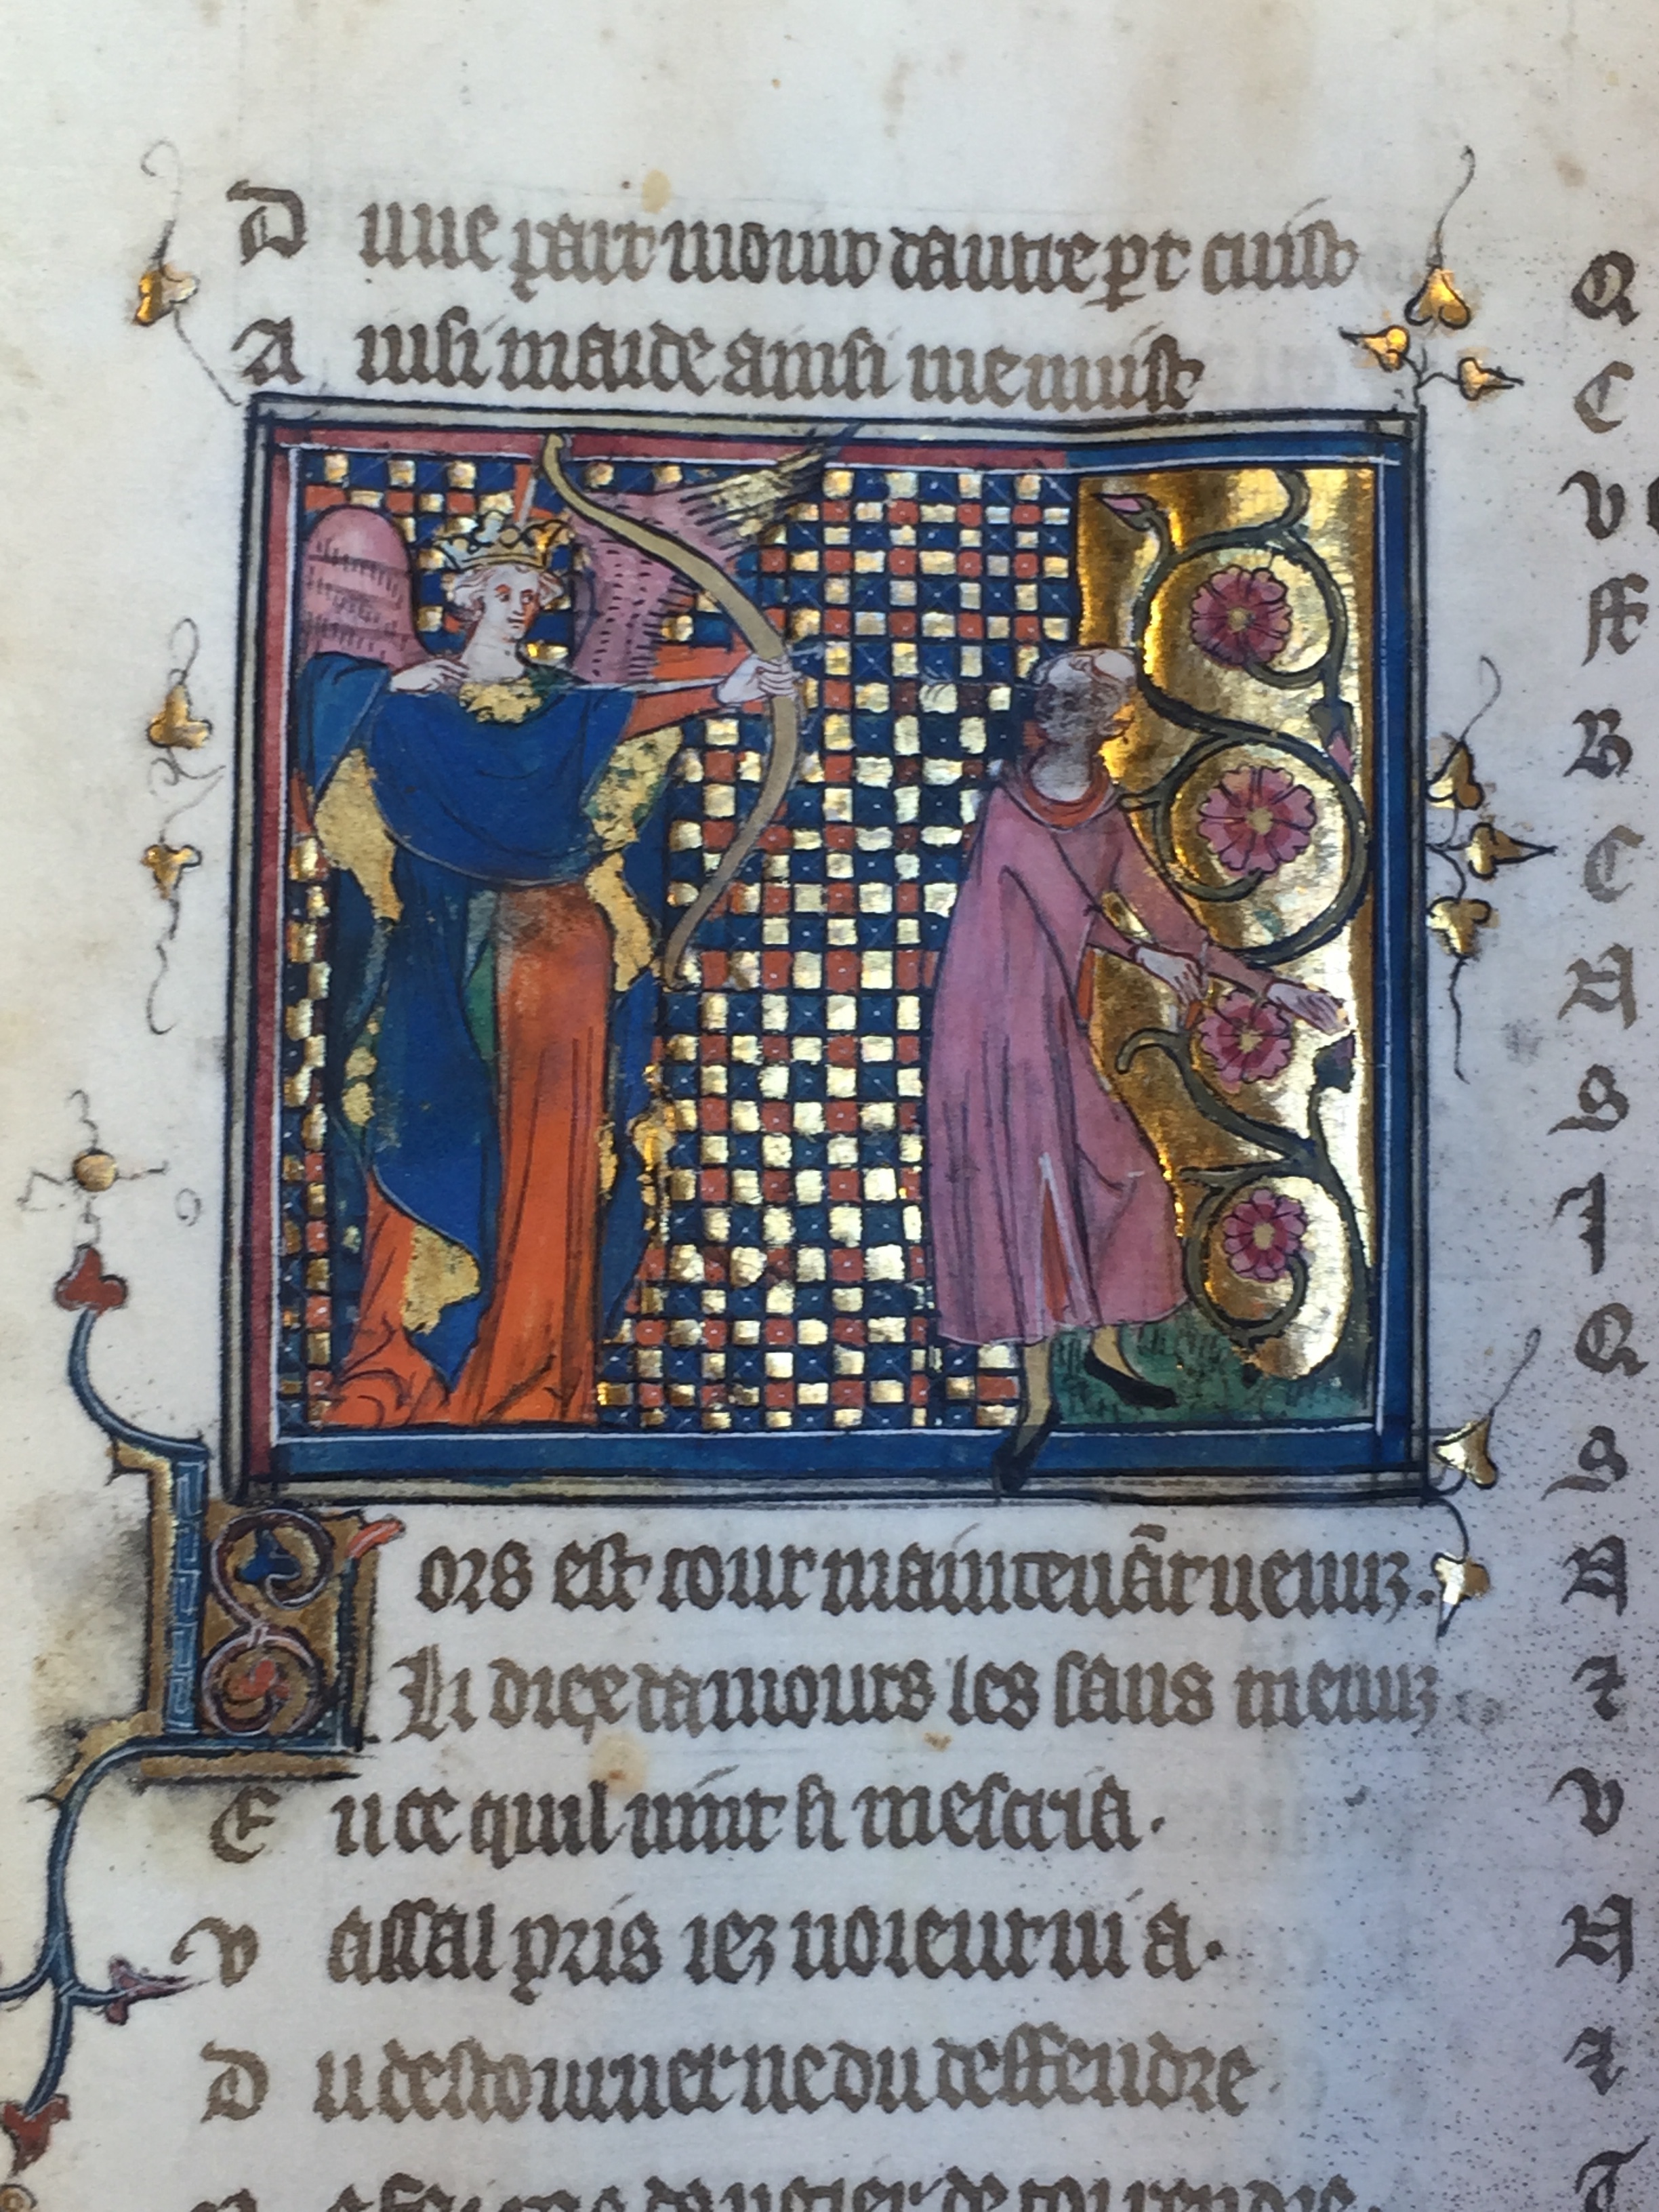 D une part moint dautre pt cuist
A insi maide ainsi me nuist
Lors est tout maintenāt uenuz.
Li diex damours les sauz menuz
E n ce quil uint si mescria.
V assal pris iez noient ni a.
D u destourner ne du deffendre.
Q
C
V
ff
B
C
A
S
I
Q
S
A
7
V
A
7